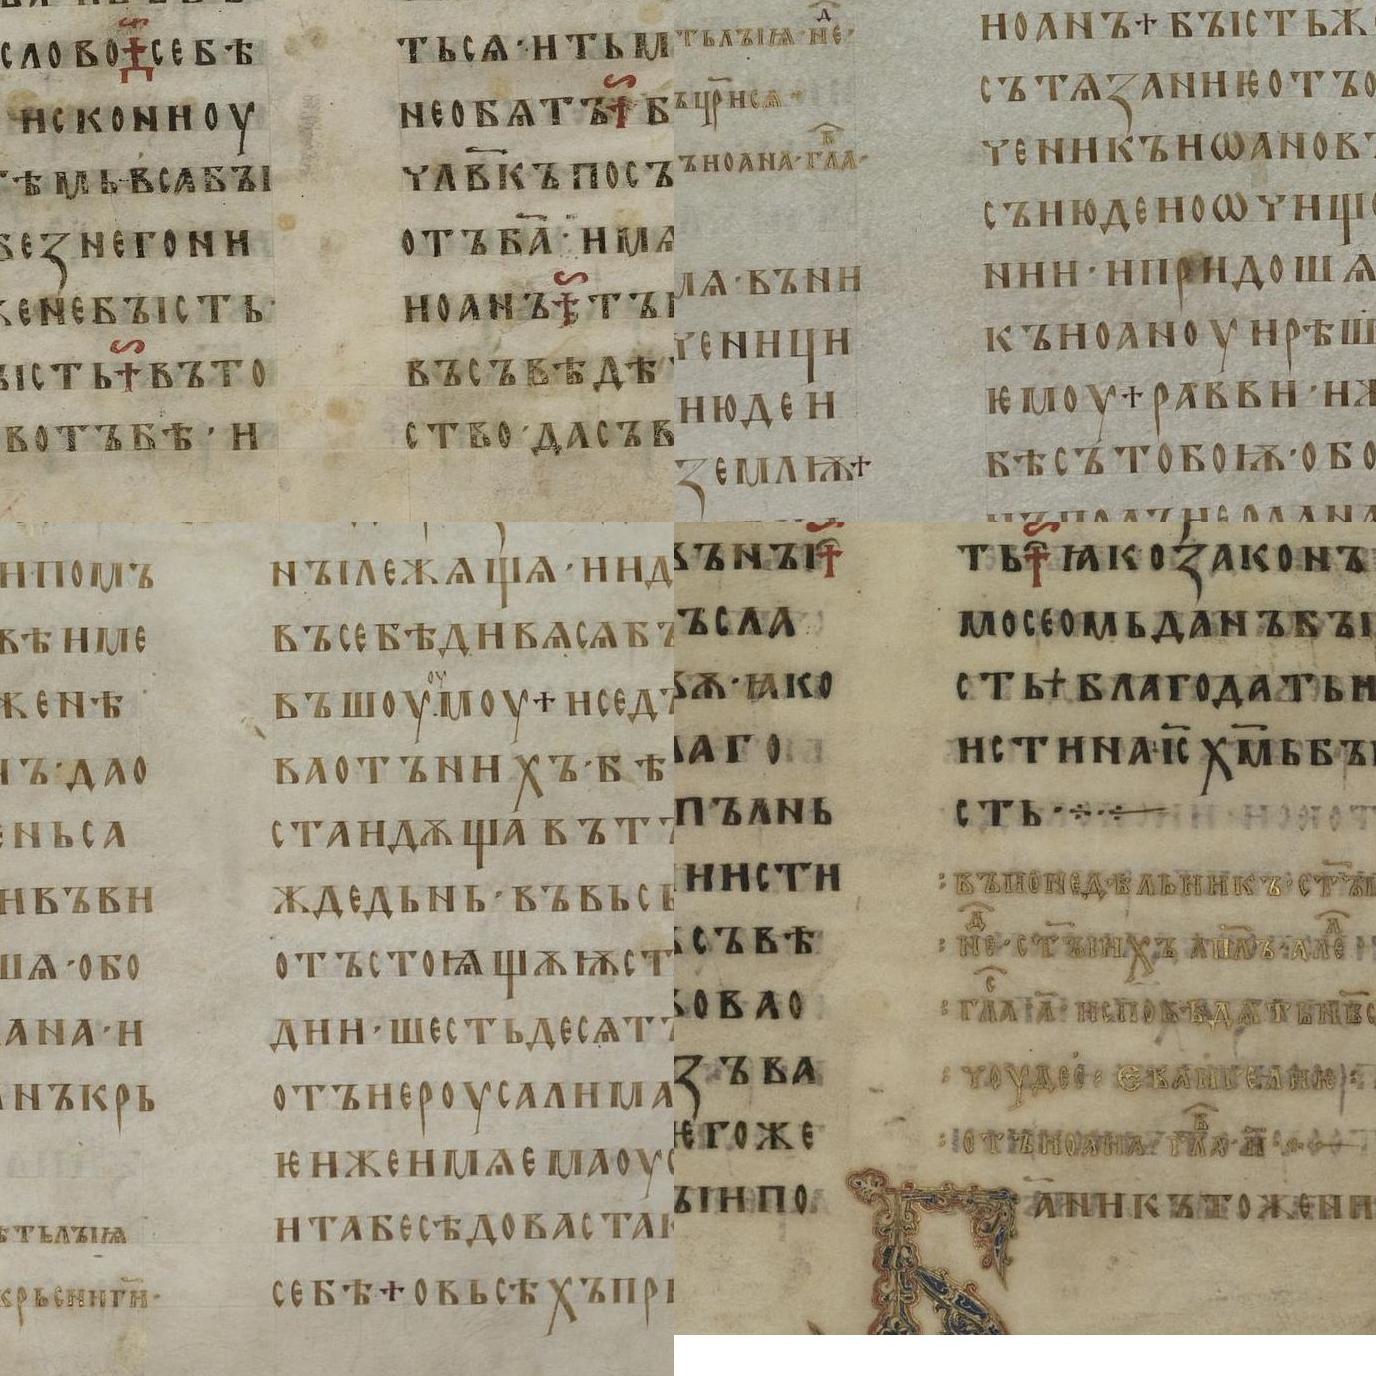 словоотъсебѣ
искониоу
ѣмьвсабꙑ
безнегони
женебꙑсть
ꙑсть✝въто
вотъбѣ·и
тьсѧ·итьм
необѧтъ✝б
чл҃вкъпосъ
отъб҃а·имѧ
иоанъ✝тъ
въсъвѣдѣ
ство·дасъв
тълъіꙗ·не·
ъноана·гла·
лѧ·въни
ченици
июдеи
землѭ✝
иоанъ✝бꙑстьж
сътѧзаниѥотъо
ченикъиѡанов
съиюдеиоѡчищ
нии·ипридошѧ
къиоаноуирѣш
ѥмоу✝равви·иж
бѣсътобоѭ·обо
ипомъ
вѣиме
женѣ
ъ·дло
еньса
ивъви
шѧ·обо
ана·и
нъкрь
ѣтълъіꙗ
крьсниги·
нꙑлежѧщѧ·иид
въсебѣдивѧсѧбꙑ
въшоуѹмоу✝иседъ
ваотъниххъ·бѣ
стаидѫщавътъ
ждедьнь·въвьсь
отъстоꙗщѫѭст
дии·шестьдесѧтъ
отъиероусалима
ѥиженмѧемаоус
итабесѣдовастак
себѣ✝овьсѣхъпри
вънꙑ✝
ъсла
бѫ·ꙗко
лаго
пълнь
иисти
съвѣ
ковао
зъва
негоже
ꙑипо
ть✝ꙗкозаконъ
мосеомьданъбꙑ
сть✝благодатьи
истинаі҃с х҃мьбꙑ
сть·
:въпонедѣльникъ·ст҃ꙑ
:не·ст҃ꙑихъ ап҃лъ·але
:гла·а҃· исповѣдатьнис
:чоудес: еваньгелию:
:отъиоана·гла·и҃
Банкътожени